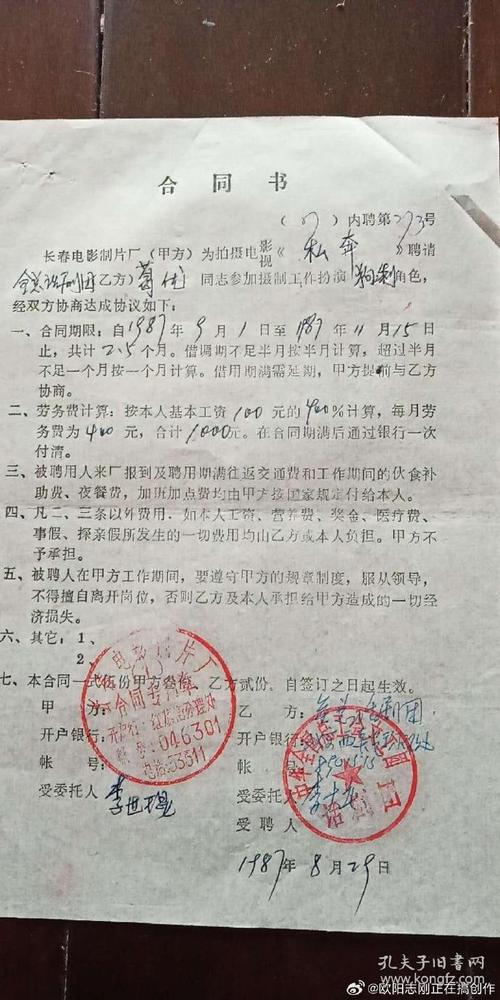 合同书
（87）内聘第273号
长春电影制片厂（甲方）为拍摄电影视《私奔》聘请
全总话剧团（乙方）葛优同志参加摄制工作扮演狗剩角色，
经双方协商达成协议如下：
一、合同期限：自1987年9月1日至1987年11月15日
止，共计2.5个月。借调期不足半月按半月计算，超过半月
不足一个月按一个月计算。借用期满需延期，甲方提前与乙方
协商。
二、劳务费计算：按本人基本工资100元的400%计算，每月劳
务费为400元，合计1000元。在合同期满后通过银行一次
付清。
三、被聘用人来厂报到及聘用期满往返交通费和工作期间的伙食补
助费、夜餐费，加班加点费均由甲方按国家规定付给本人。
四、凡二、三条以外费用，如本人工资、营养费、奖金、医疗费、
事假、探亲假所发生的一切费用均由乙方或本人负担。甲方不
予承担。
五、被聘人在甲方工作期间，要遵守甲方的规章制度，服从领导，
不得擅自离开岗位，否则乙方及本人承担给甲方造成的一切经
济损失。
六、其它：1、
2、
七、本合同一式伍份甲方叁份，乙方贰份。自签订之日起生效。
甲方：
乙方：全总话剧团
开户银行：
开户银行：
帐号：
帐号：
受委托人 李世
受委托人 李
受聘人
电影制片厂
合同专用章
046301
电话：53311
话剧团
1987年8月29日
孔夫子旧书网
@欧阳志刚正在搞创作
kongfz.com